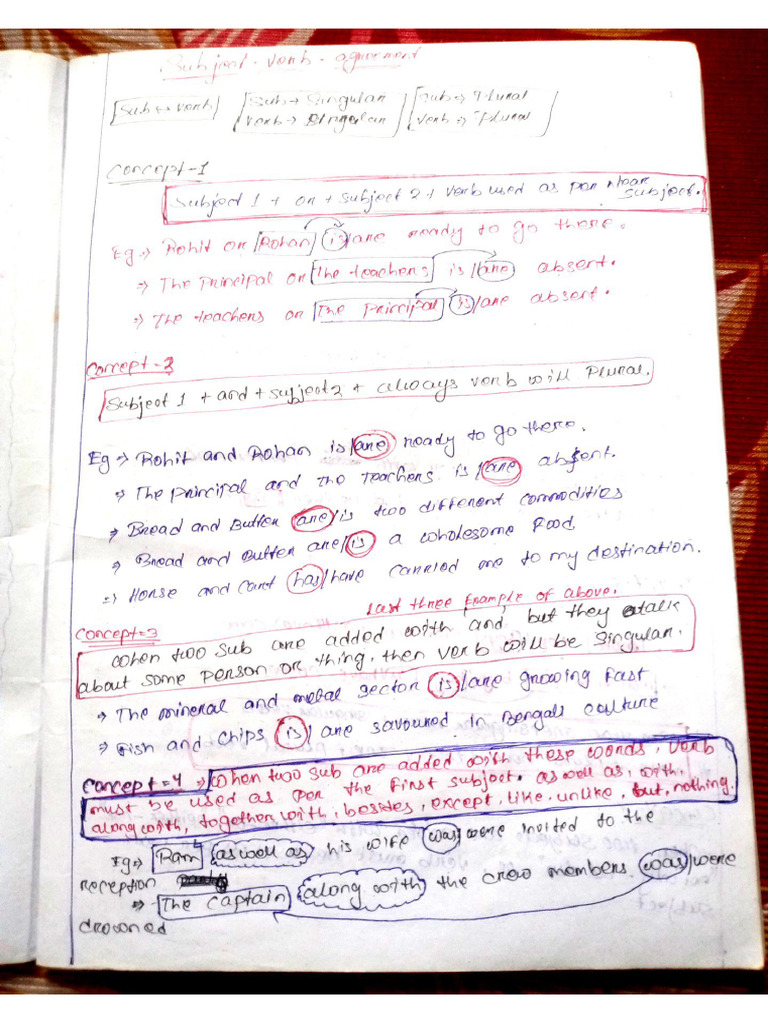 Subject - verb - agreement
Sub ↔ verb | Sub → Singular | Sub → Plural
verb → Singular | verb → Plural
Concept-1
Subject 1 + or + subject 2 + verb used as per Near subject.
Eg → Rohit or Rohan is/are ready to go there.
→ The Principal or The teachers is/are absent.
→ The teachers or The Principal is/are absent.
Concept-2
Subject 1 + and + subject 2 + always verb will Plural.
Eg → Rohit and Rohan is/are ready to go there.
→ The Principal and The Teachers is/are absent.
→ Bread and Butter are/is two different commodities
→ Bread and Butter are/is a wholesome Food.
→ Horse and Cart has/have carried me to my destination.
Last three Example of above.
Concept=3
When two sub are added with 'and' but they talk
about some Person or thing, then verb will be Singular.
→ The mineral and metal sector is/are growing fast
→ Fish and Chips is/are savoured in Bengali culture
Concept=4 → When two sub are added with these words, verb
must be used as per the First subject. as well as, with,
along with, together with, besides, except, like, unlike, but, nothing.
Eg → Ram as well as his wife was/were invited to the
reception
→ The captain along with the crew members was/were
drowned